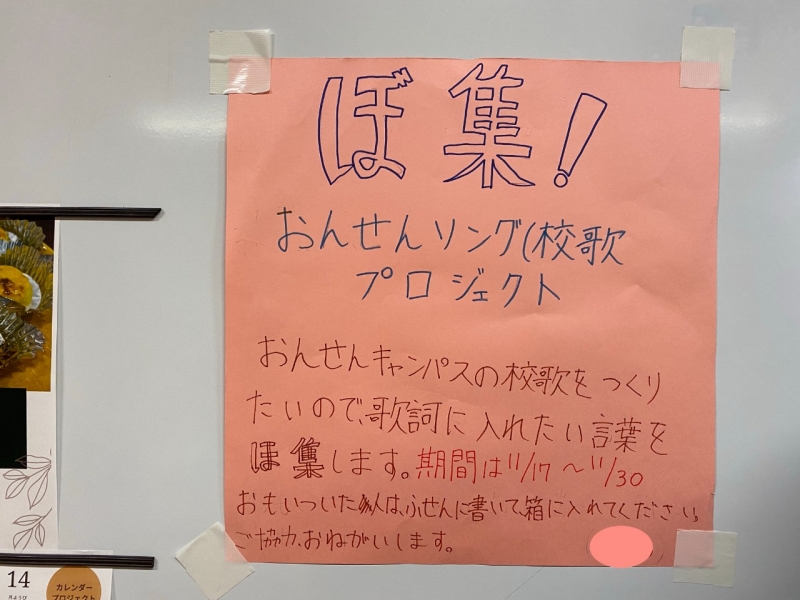 ぼ集!
おんせんソング(校歌
プロジェクト
おんせんキャンパスの校歌をつくり
たいので、歌詞に入れたい言葉を
ぼ集します。期間は11/17〜11/30
おもいついた人は、ふせんに書いて、箱に入れてください。
ご協力、おねがいします。
14
カレンダー
プロジェクト